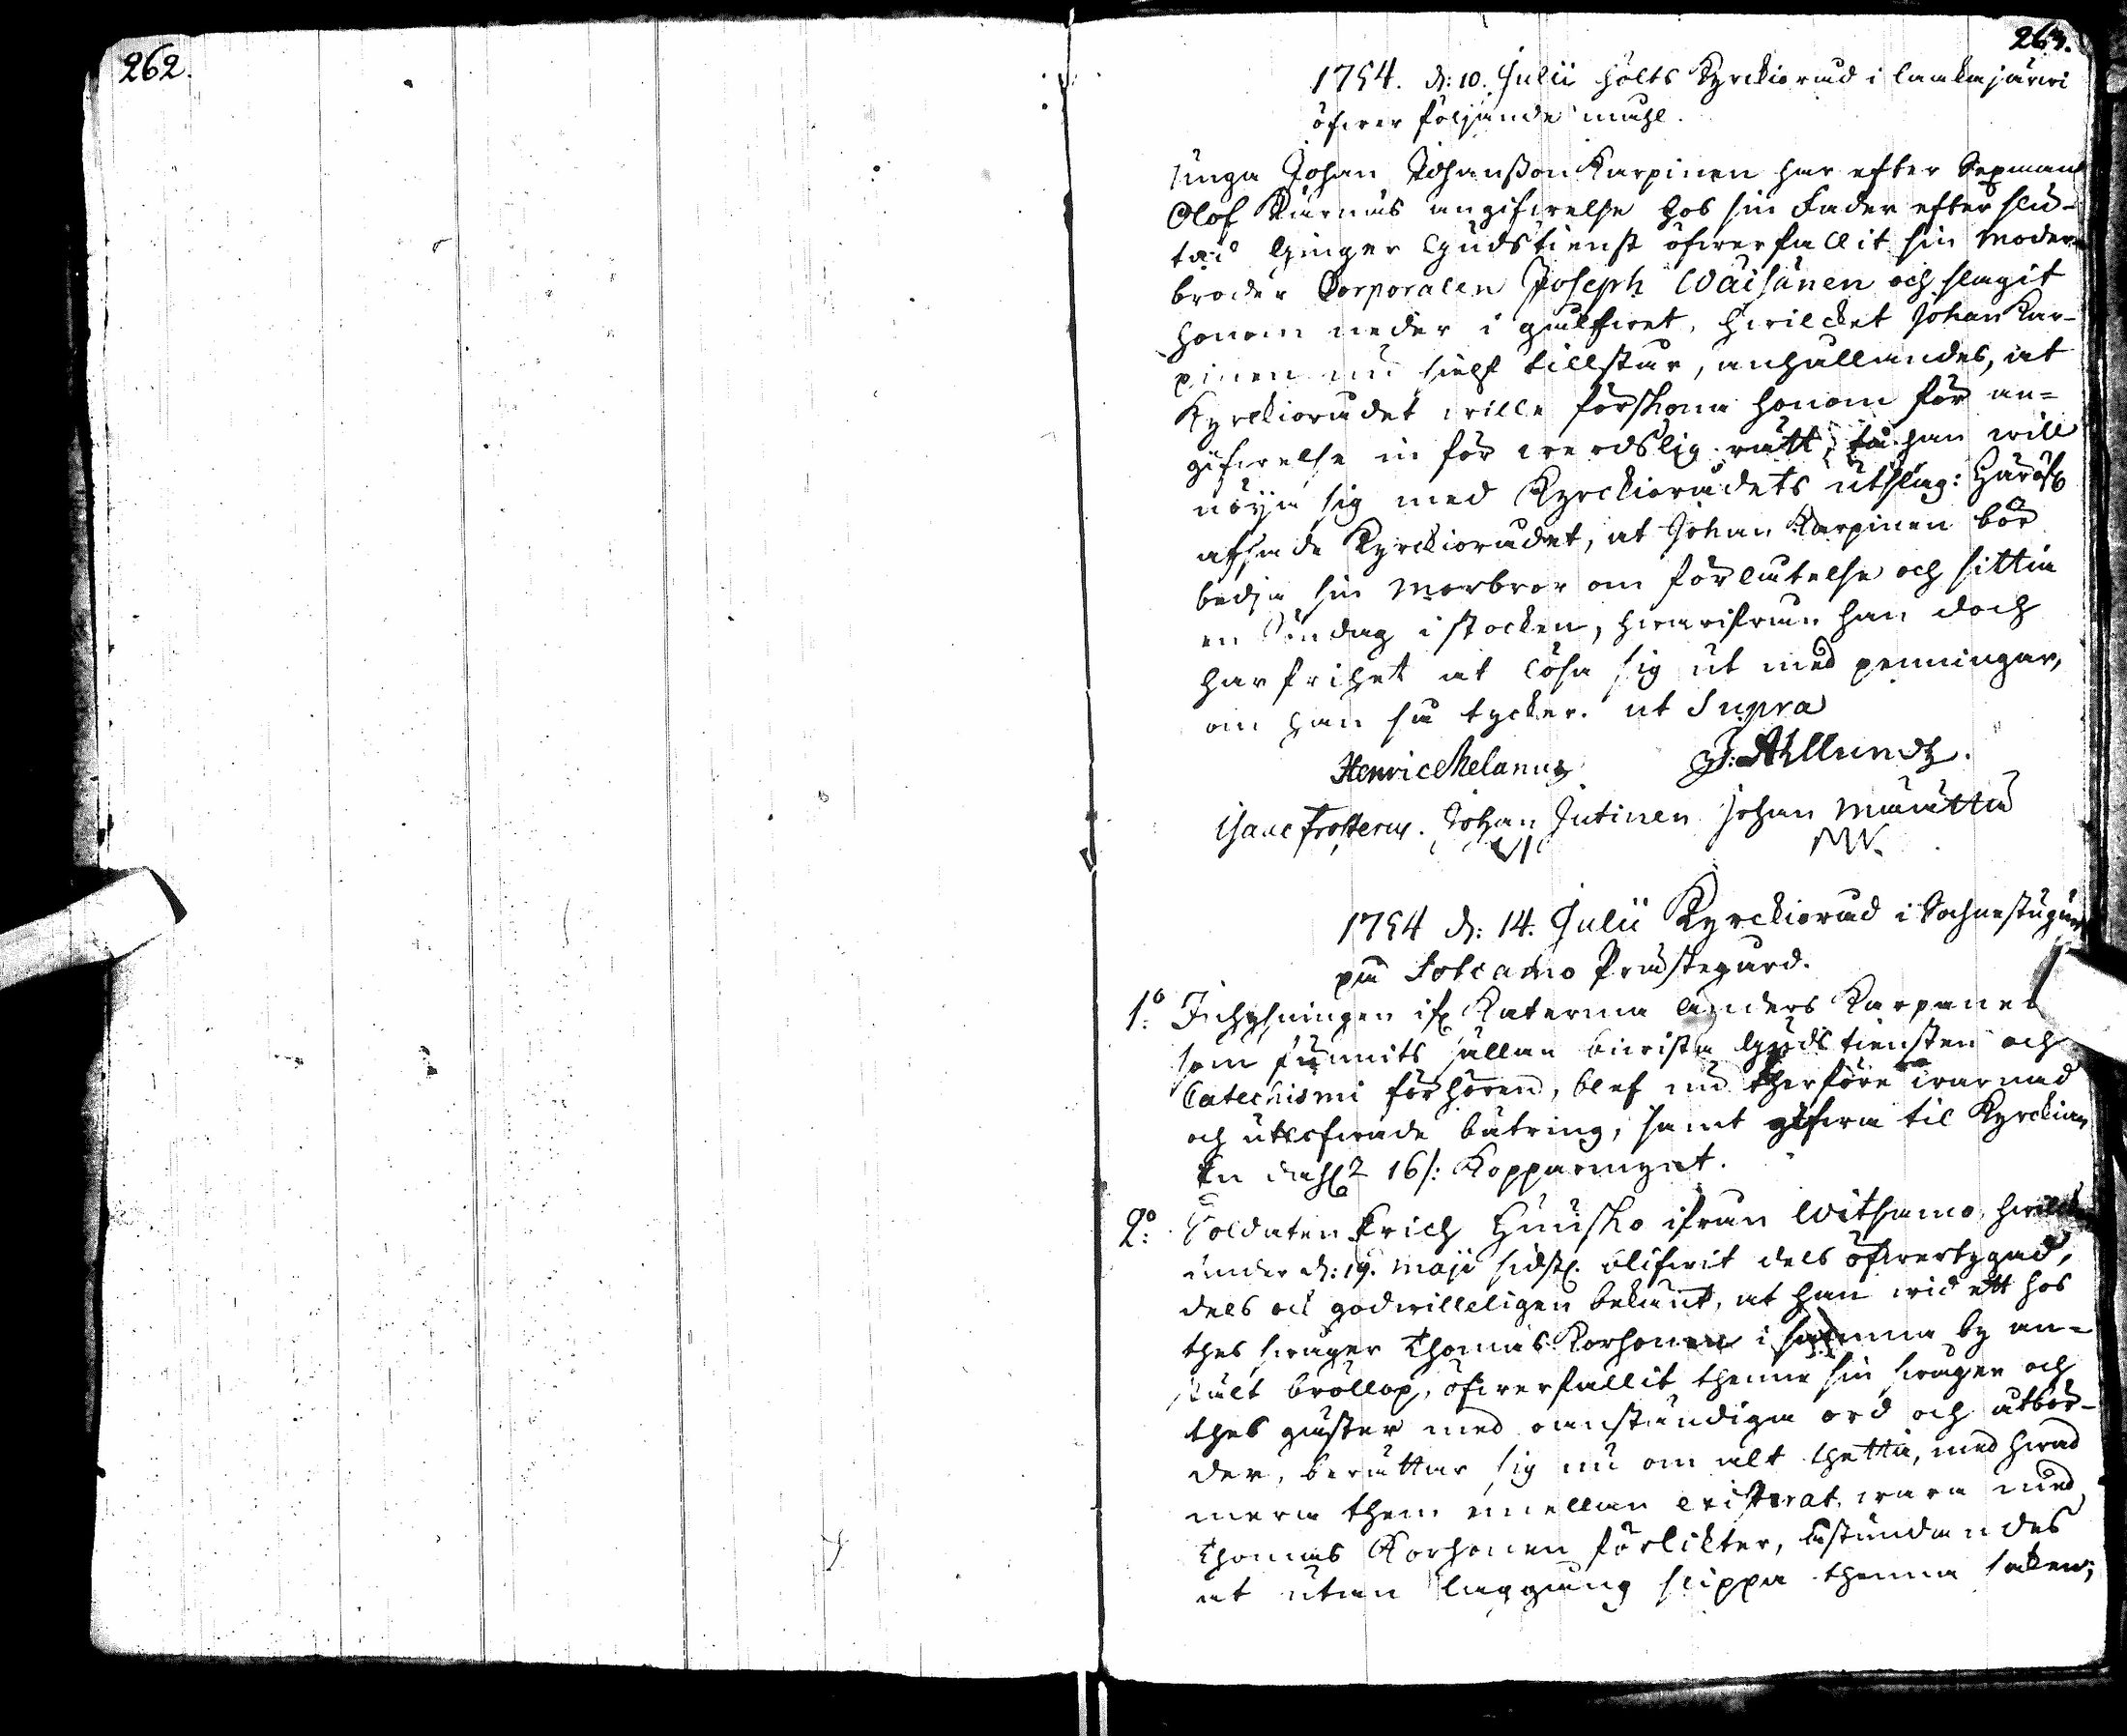 262.
263.
1754. d: 10. Julii hölts Kyrckioråd i Laakajärwi
öfwer följande måhl.
unga Johan Johansson Karpinen har efter Sexman
Olof Kärnäs angifwelse hos sin Fader efter slu-
tad Gudstienst öfwerfallit sin Moder-
broder Corporalen Joseph Wäisänen och slagit
honom neder i gulfwet, hwilcket Johan Kar-
pinen nu sielf tillstår, anhållandes, at
Kyrckiorådet wille förskona honom för an-
gifwelse in för werdslig rätt, då han will
nöija sig med Kyrckiorådets utslag: Häröf.
afsade Kyrckiorådet, at Johan Karpinen bör
bedja sin Morbror om förlåtelse och sittia
en Söndag i stocken, hwarifrån han doch
har frihet at lösa sig ut med penningar,
om han så tycker. ut Supra
Henric Melanus J: Ahllundh.
Isaac Frosterus. Johan Jutinen Johan Määttä
1754 d: 14. Julii Kyrckioråd i Sochnestugun
på Sotcamo Prästegård.
1:o Inhysningen if. Katerma Anders Karpanen
som funnits sällan biwista Gudstiensten och
Catechismi förhören, blef nu therföre warnad
och utlofwade bätring, samt gifwa til Kyrckian
En dahl. 16/: Kopparmynt.
2:o Soldaten Erich Huusko ifrån Wihtamo, hwilcken
under d: 19. Maji sidstl. blifwit dels öfwertygad,
dels ock godwilleligen bekänt, at han wid ett hos
thes swåger Thomas Korhonen i samma by an-
stält bröllop, öfwerfallit thenne sin swåger och
thes gäster med oanständiga ord och åtbör-
der, berättar sig nu om alt thetta, med hwad
mera them emellan existerat, wara med
Thomas Korhonen förlikter, åstundandes
at utan laggång slippa thenna saken;